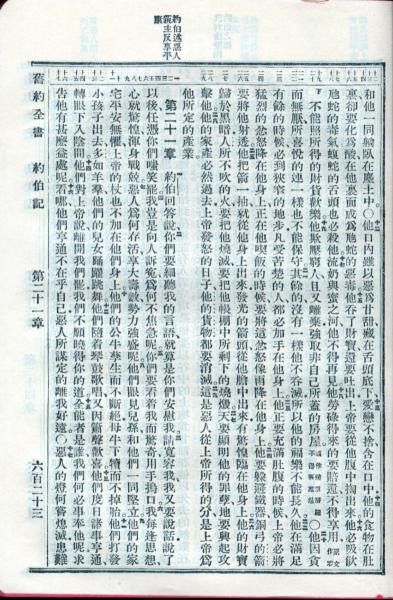 和他一同躺臥在塵土中〇他口內雖以惡爲甘甜藏在舌頭底下愛戀不捨含在口中他的食物在肚
裏卻要化爲酸在他裏面成爲虺蛇的惡毒他吞了財寶還要吐出上帝要從他腹中掏出來他必吸飲
虺蛇的毒氣蝮蛇的舌頭也必殺他流奶與蜜之河他不得再見他勞碌得來的要賠還不得享用
不能照所得的財貨歡樂他欺壓窮人且又離棄強取非自己所蓋的房屋〇他因貪
而無厭所喜悅的連一樣也不能保守其餘的沒有一樣他不吞滅所以他的福樂不能長久他在滿足
有餘的時候必到狹窄的地步凡受苦楚的人都必加手在他身上他正要充滿肚腹的時候上帝必將
猛烈的忿怒降在他身上正在他喫飯的時候要將這忿怒像雨降在他身上他要躱避鐵器銅弓的箭
要將他射透他把箭一抽就從他身上出來發光的箭頭從他膽中出來有驚惶臨在他身上他的財寶
歸於黑暗人所不吹的火要把他燒滅要把他帳棚中所剩下的燒燬天要顯明他的罪孽地要興起攻
擊他他的家產必然過去上帝發怒的日子他的貨物都要消滅這是惡人從上帝所得的分是上帝爲
他所定的產業
第二十一章 約伯回答說你們要細聽我的言語就算是你們安慰我請寬容我我又要說話說了
以後任憑你們嗤笑罷我豈是向人訴冤爲何不焦急呢你們要看着我而驚奇用手摀口我每逢思想
心就驚惶渾身戰兢惡人爲何存活享大壽數勢力強盛呢他們眼見兒孫和他們一同堅立他們的家
宅平安無懼上帝的杖也不加在他們身上他們的公牛孳生而不斷絕母牛下犢而不掉胎他們打發
小孩子出去多如羊羣他們的兒女踊躍跳舞他們隨着琴鼓歌唱又因簫聲歡喜他們度日諸事亨通
轉眼下入陰間他們對上帝說離開我們罷我們不願曉得你的道全能者是誰我們何必事奉他呢求
告他有甚麼益處呢看哪他們亨通不在乎自己惡人所謀定的離我好遠〇惡人的燈何嘗熄滅患難
約伯述惡人
反享平
康
舊約全書 約伯記 第二十一章 六百二十三